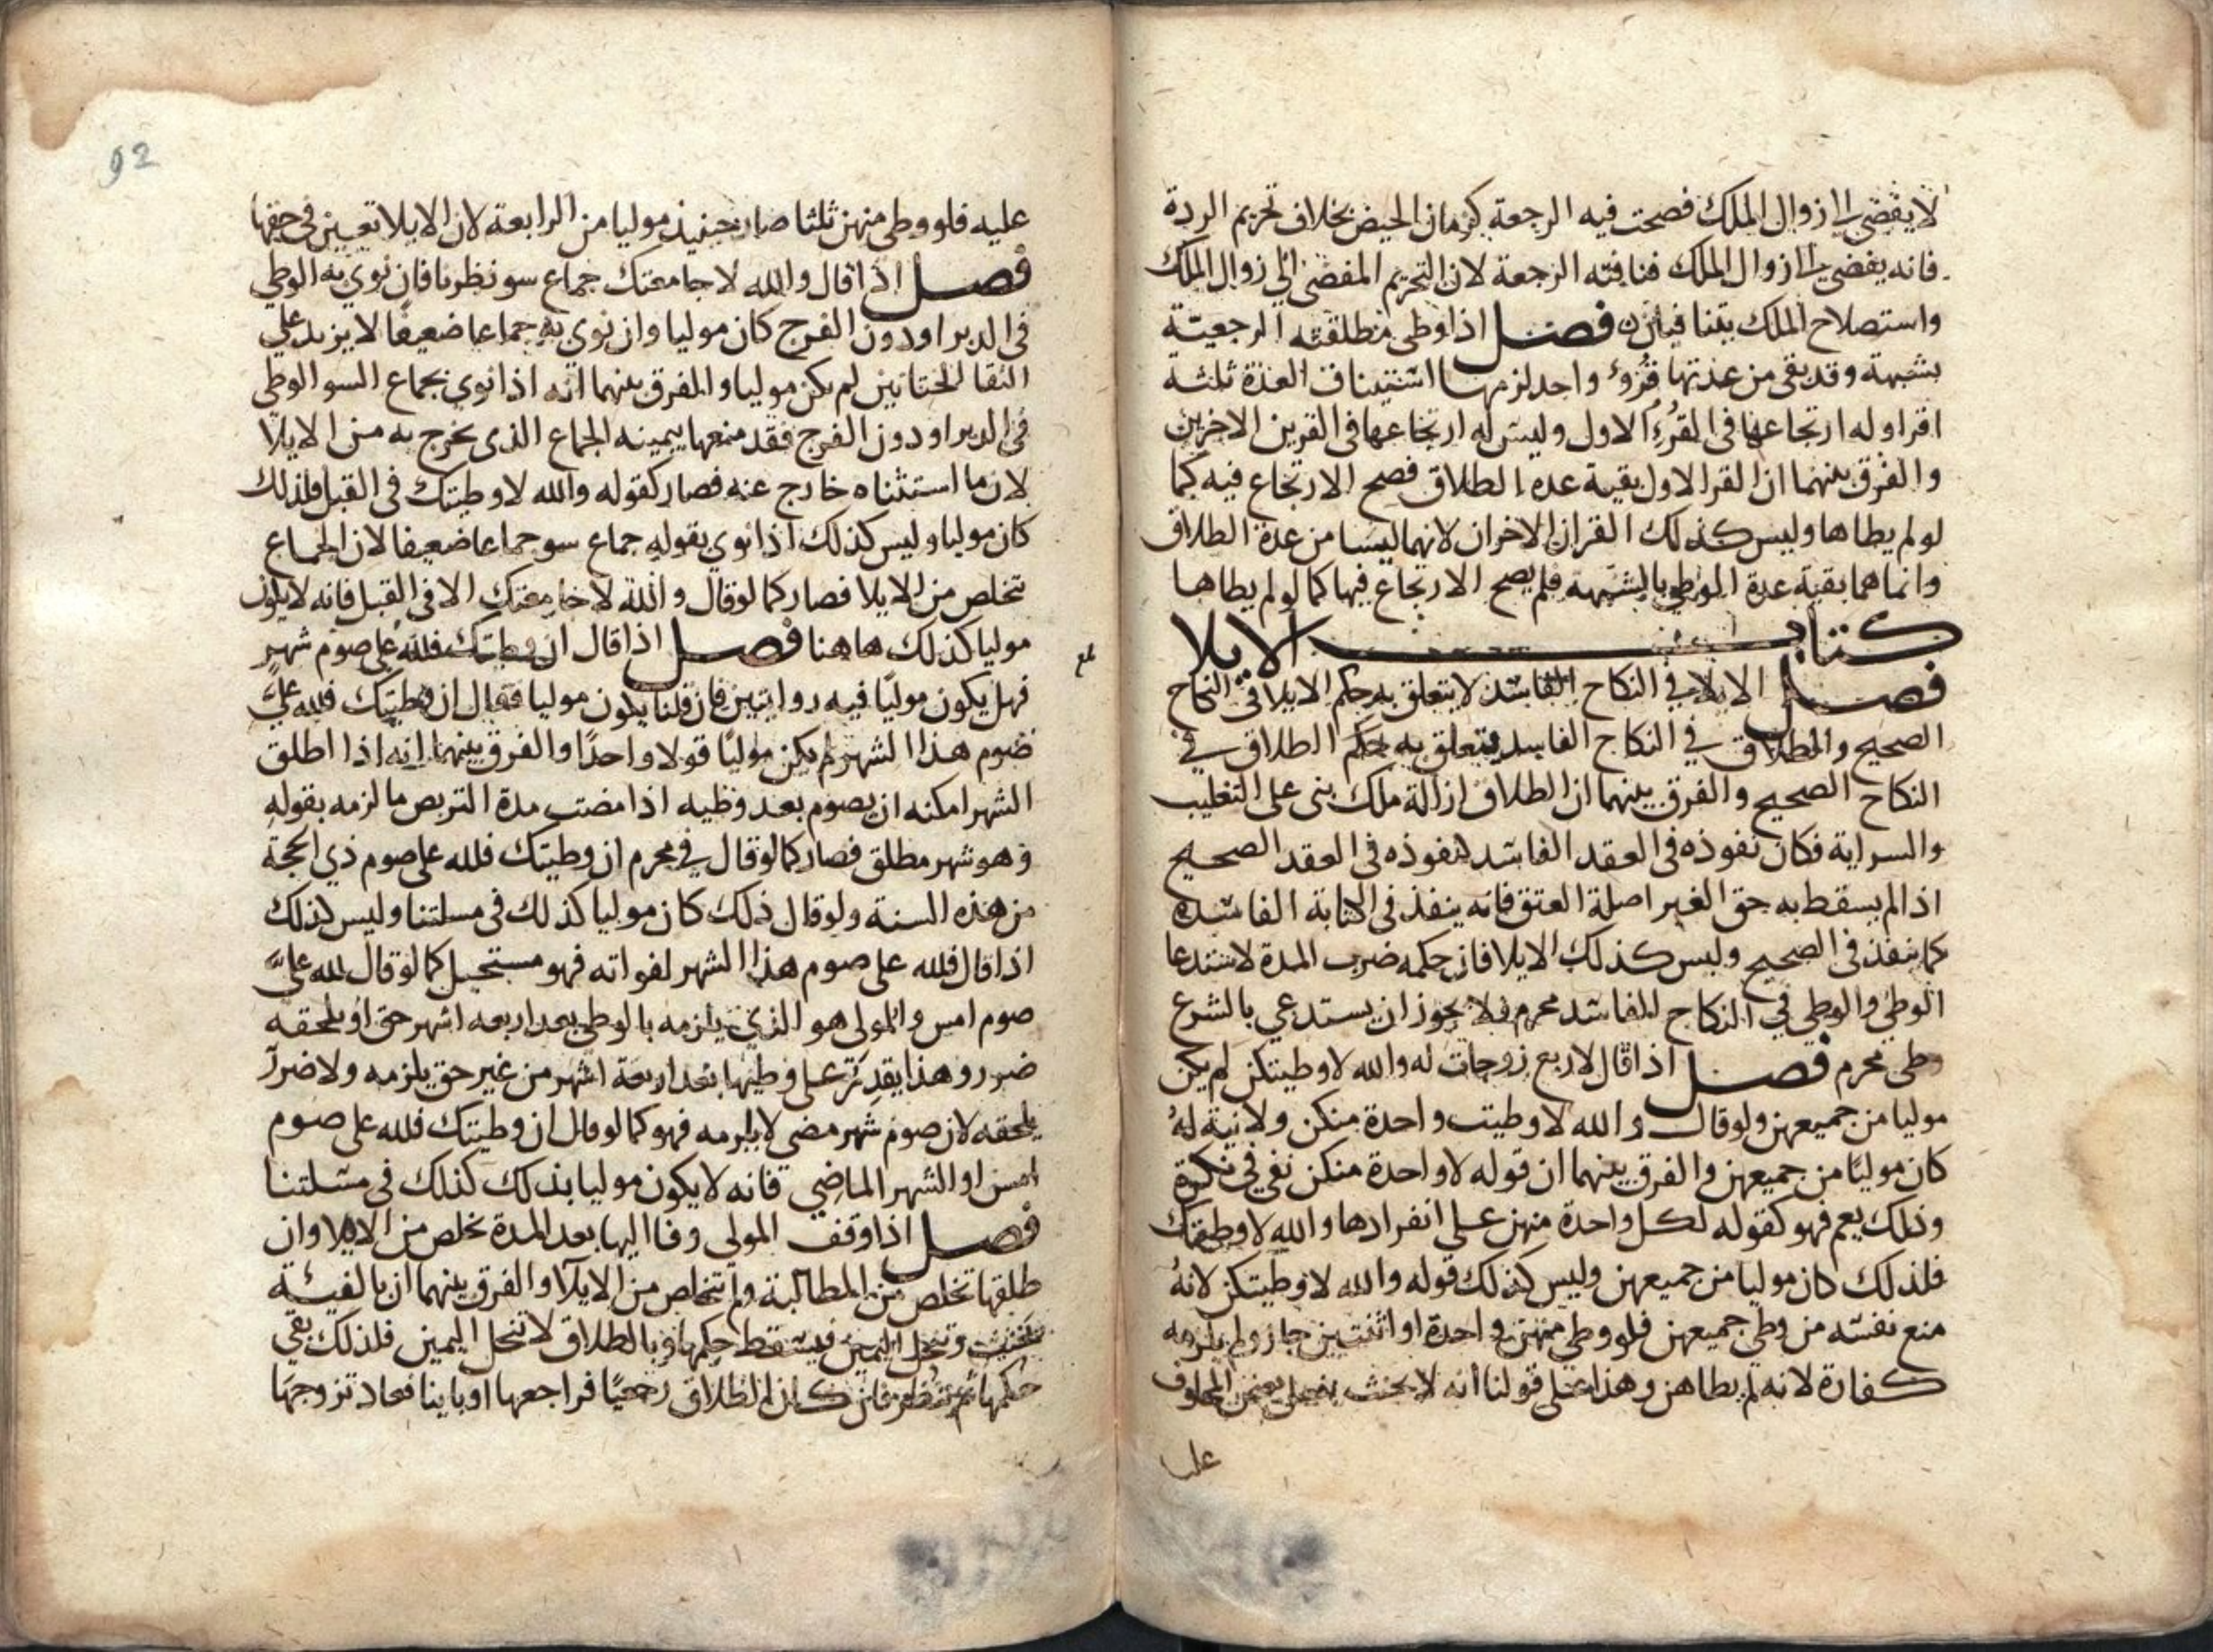 لا يفضي الى زوال الملك فصحت فيه الرجعة كزمان الحيض بخلاف تحريم الردة
فانه يفضي الى زوال الملك فنافته الرجعة لان التحريم المفضى الي زوال الملك
واستصلاح الملك يتنافيان فصل اذا وطى مطلقته الرجعية
بشبهة وقد بقى من عدتها قروء واحد لزمها استيناف العدة ثلثة
اقرا وله ارتجاعها في القرء الاول وليس له ارتجاعها في القرين الاخرين
والفرق بينهما ان القر الاول بقية عدة الطلاق فصح الارتجاع فيه كما
لو لم يطاها وليس كذلك القران الاخران لانهما ليسا من عدة الطلاق
وانما هما بقية عدة الوطي بالشبهة فلم يصح الارتجاع فيها كما لو لم يطاها
كتاب الايلا
فصل الايلا في النكاح الفاسد لا يتعلق به حكم الايلا في النكاح
الصحيح والطلاق في النكاح الفاسد يتعلق به حكم الطلاق في
النكاح الصحيح والفرق بينهما ان الطلاق ازالة ملك بنى على التغليب
والسراية فكان نفوذه في العقد الفاسد كنفوذه في العقد الصحيح
اذا لم يسقط به حق الغير اصله العتق فانه ينفذ في الكتابة الفاسدة
كما ينفذ في الصحيح وليس كذلك الايلا فان حكمه ضرب المدة لاستدعا
الوطي والوطي في النكاح الفاسد محرم فلا يجوز ان يستدعي بالشرع
وطى محرم فصل اذا قال لاربع زوجات له والله لا وطيتكن لم يكن
موليا من جميعهن ولو قال والله لا وطيت واحدة منكن ولا نية له
كان موليا من جميعهن والفرق بينهما ان قوله لا واحدة منكن نفي في نكرة
وذلك يعم فهو كقوله لكل واحدة منهن على انفرادها والله لا وطيتك
فلذلك كان موليا من جميعهن وليس كذلك قوله والله لا وطيتكن لانه
منع نفسه من وطي جميعهن فلو وطي منهن واحدة او اثنتين جاز ولم يلزمه
كفارة لانه لم يطاهن وهذا على قولنا انه لا يحنث بفعل بعض المحلوف
عليه
92
عليه فلو وطى منهن ثلثا صار حينيذ موليا من الرابعة لان الايلا تعين في حقها
فصل اذا قال والله لا جامعتك جماع سو نظرنا فان نوي به الوطي
في الدبر او دون الفرج كان موليا وان نوي به جماعا ضعيفا لا يزيد على
التقا الختانين لم يكن موليا والفرق بينهما انه اذا نوي بجماع السو الوطي
في الدبر او دون الفرج فقد منعها بيمينه الجماع الذى يخرج به من الايلا
لان ما استثناه خارج عنه فصار كقوله والله لا وطيتك في القبل فلذلك
كان موليا وليس كذلك اذا نوي بقوله جماع سو جماعا ضعيفا لان الجماع
تخلص من الايلا فصار كما لو قال والله لا جامعتك الا في القبل فانه لا يكون
موليا كذلك هاهنا فصل اذا قال ان وطيتك فلله على صوم شهر
فهل يكون موليا فيه روايتين فان قلنا يكون موليا فقال ان وطيتك فلله علىّ
صوم هذا الشهر لم يكن موليا قولا واحدا والفرق بينهما انه اذا اطلق
الشهر امكنه ان يصوم بعد وطيه اذا مضت مدة التربص ما لزمه بقوله
وهو شهر مطلق فصار كما لو قال في محرم ان وطيتك فلله على صوم ذي الحجة
من هذه السنة ولو قال ذلك كان موليا كذلك في مسلتنا وليس كذلك
اذا قال فلله على صوم هذا الشهر لفواته فهو مستحيل كما لو قال لله علىّ
صوم امس والمولى هو الذي يلزمه بالوطي بعد اربعه اشهر حق او يلحقه
ضرر وهذا يقدر على وطيها بعد اربعة اشهر من غير حق يلزمه ولا ضرر
يلحقه لان صوم شهر مضى لا يلزمه فهو كما لو قال ان وطيتك فلله على صوم
امس او الشهر الماضي فانه لا يكون موليا بذلك كذلك في مسلتنا
فصل اذا وقف المولى وفا اليها بعد المدة تخلص من الايلا وان
طلقها تخلص من المطالبة ولم يتخلص من الايلا والفرق بينهما ان بالفيئة
يحنث وتنحل اليمين فيسقط حكمها وبالطلاق لا تنحل اليمين فلذلك بقي
حكمها ثم ننظر فان كان الطلاق رجعيا فراجعها او باينا فعاد تزوجها